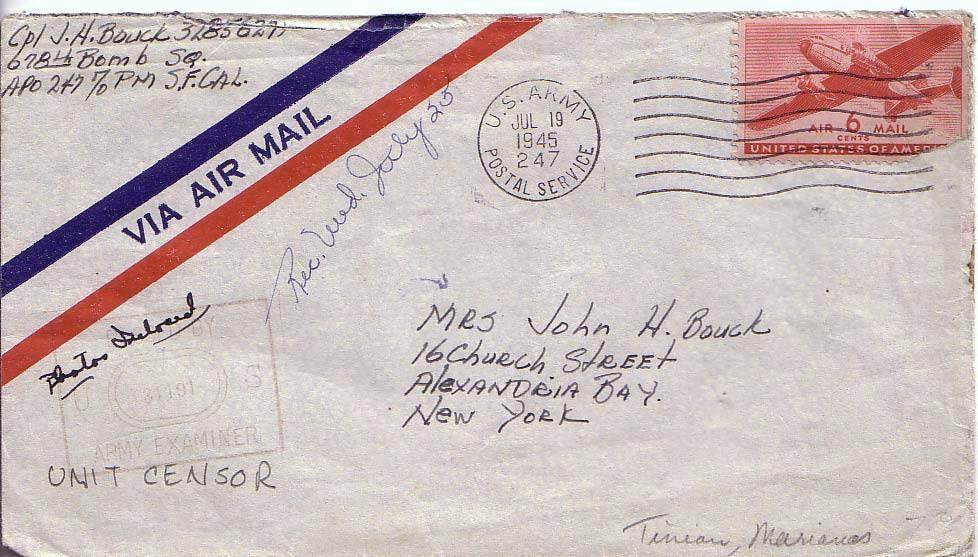 Cpl J. H. Bouck
678th Bomb Sq.
APO 247 % PM S.F. CAL.
VIA AIR MAIL
Rec. Wed. July 25
U.S. ARMY
JUL 19
1945
247
POSTAL SERVICE
AIR 6 MAIL
CENTS
UNITED STATES OF AMER
Photos Inclosed
BY
U S
ARMY EXAMINER
UNIT CENSOR
MRS John H. Bouck
16 Church Street
Alexandria Bay.
New York
Tinian, Marianas